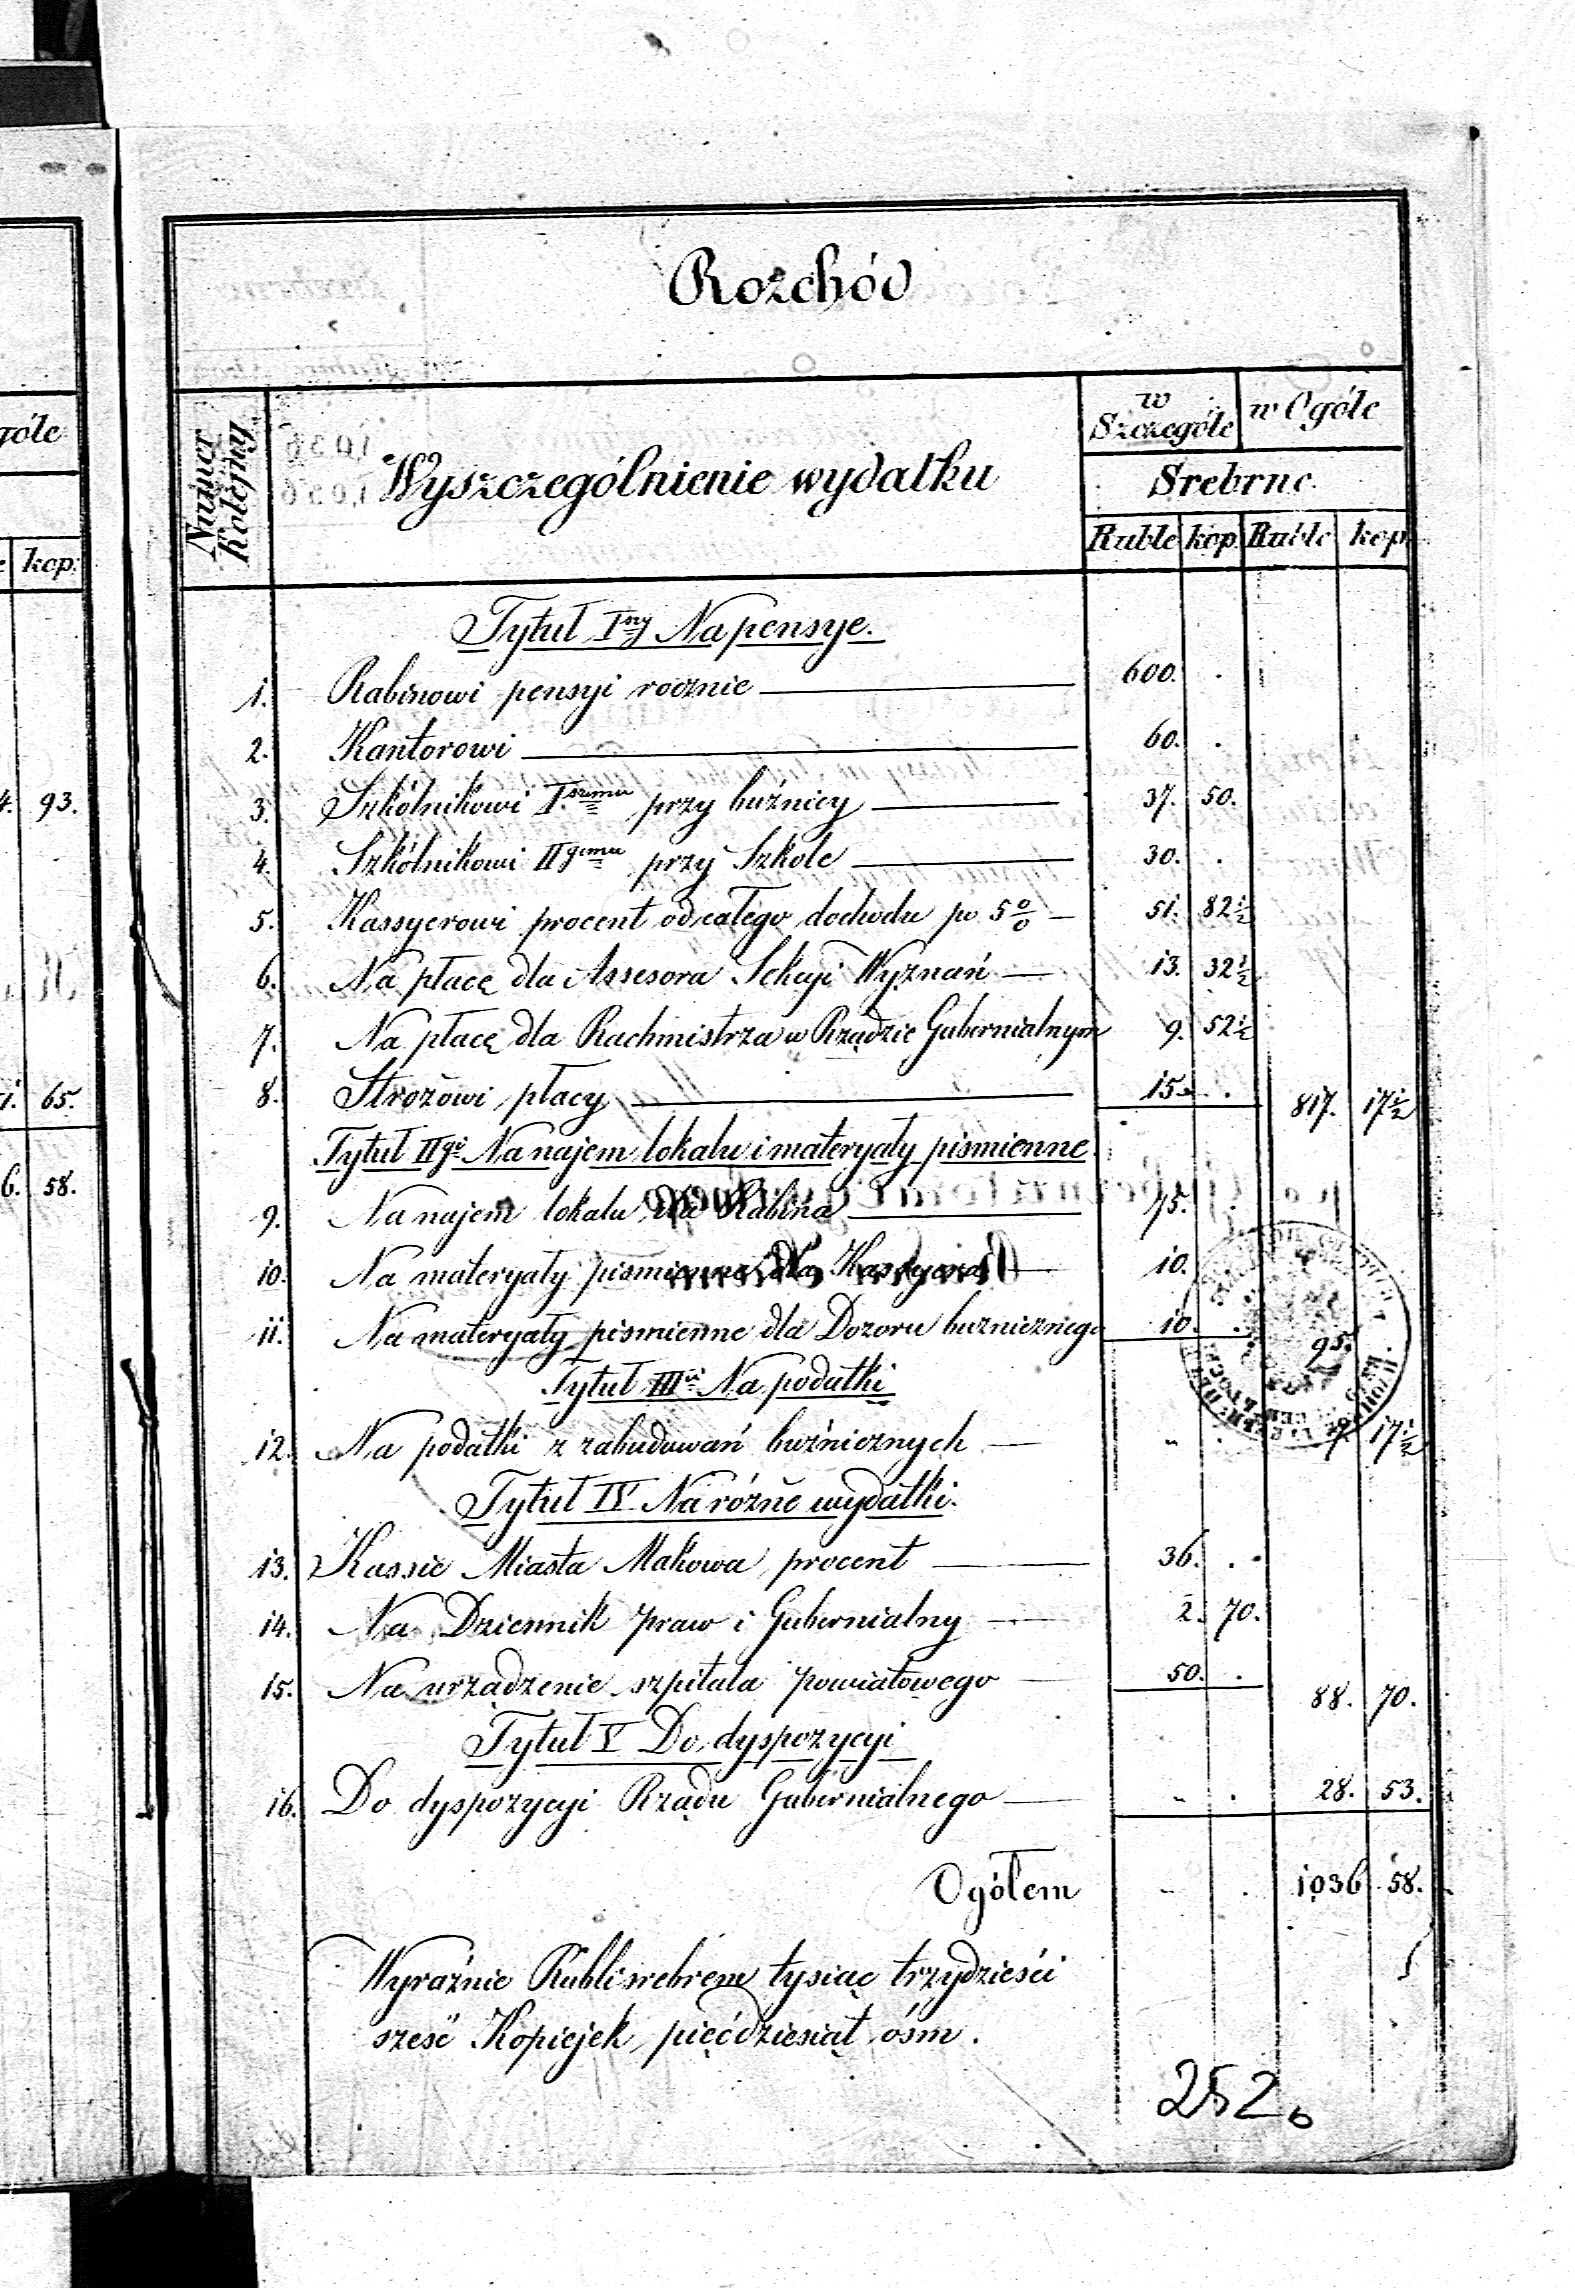 Rozchód
góle
kop:
4. 93.
65.
6. 58.
Numer Kolejny
Wyszczególnienie wydatku
w Szczególe
w Ogóle
Srebrne.
Ruble kop. Ruble kop.
Tytuł Iny Na pensye.
1. Rabinowi pensyi rocznie 600. .
2. Kantorowi 60. .
3. Szkólnikowi I.szemu przy buźnicy 37. 50.
4. Szkólnikowi IIgiemu przy Szkole 30. .
5. Kassyerowi procent od całego dochodu po 5 0/0 51. 82 1/2
6. Na płacę dla Assesora Sekcyi Wyznań 13. 32 1/2
7. Na płacę dla Rachmistrza w Rządzie Gubernialnym 9. 52 1/2
8. Strożowi płacy 15. . 817. 17 1/2
Tytuł IIgi Na najem lokalu i materyały piśmienne.
9. Na najem lokalu dla Rabina 75. .
10. Na materyały piśmienne dla Kassyera 10.
11. Na materyały piśmienne dla Dozoru buznicznego 10. . 95.
Tytuł IIIci Na podatki
12. Na podatki z zabudowań buźnicznych 17 1/2
Tytuł IV Na różne wydatki.
13. Kassie Miasta Makowa procent 36. .
14. Na Dziennik praw i Gubernialny 2. 70.
15. Na urządzenie szpitala powiatowego 50. . 88. 70.
Tytuł V Do dyspozycyi
16. Do dyspozycyi Rządu Gubernialnego 28. 53.
Ogółem 1036 58.
Wyraźnie Rubli srebrem tysiąc trzydzieści
sześć Kopiejek pięćdziesiąt ośm.
252b